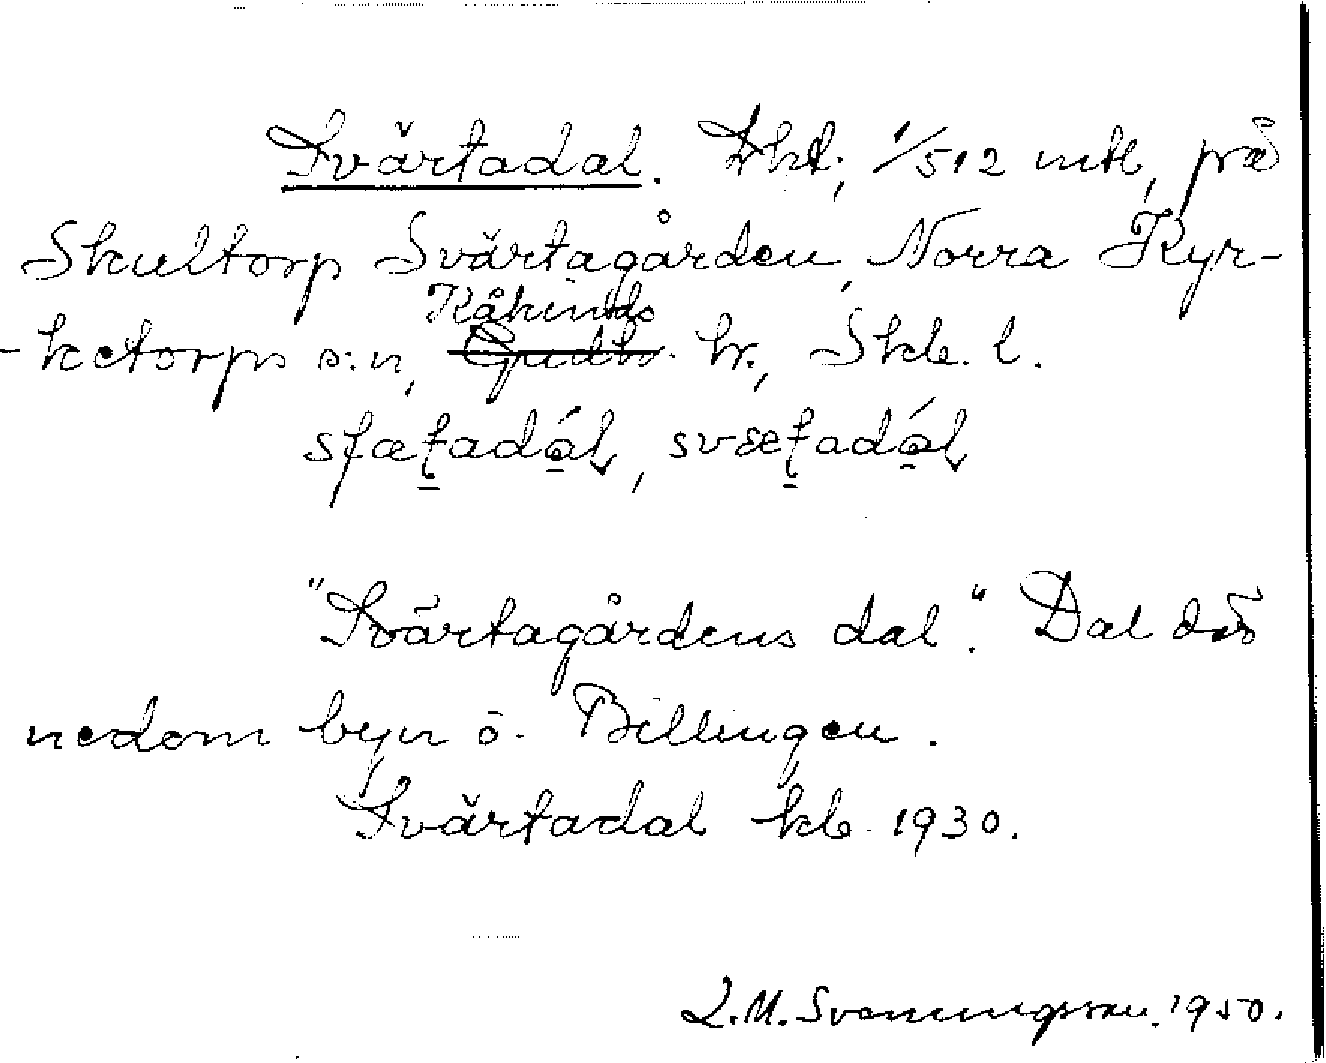 Svärtadal. Lht, 1/512 mtl, på
Skultorp Svärtagården, Norra Kyr-
Kåkinds
-ketorps s:n, Gudh. hr., Skb. l.
sfæt̠adál, svæt̠adál
"Svärtagårdens dal." Dal där
nedom byn ö. Billingen.
Svärtadal kb 1930.
L.M. Svenungsson. 1950.